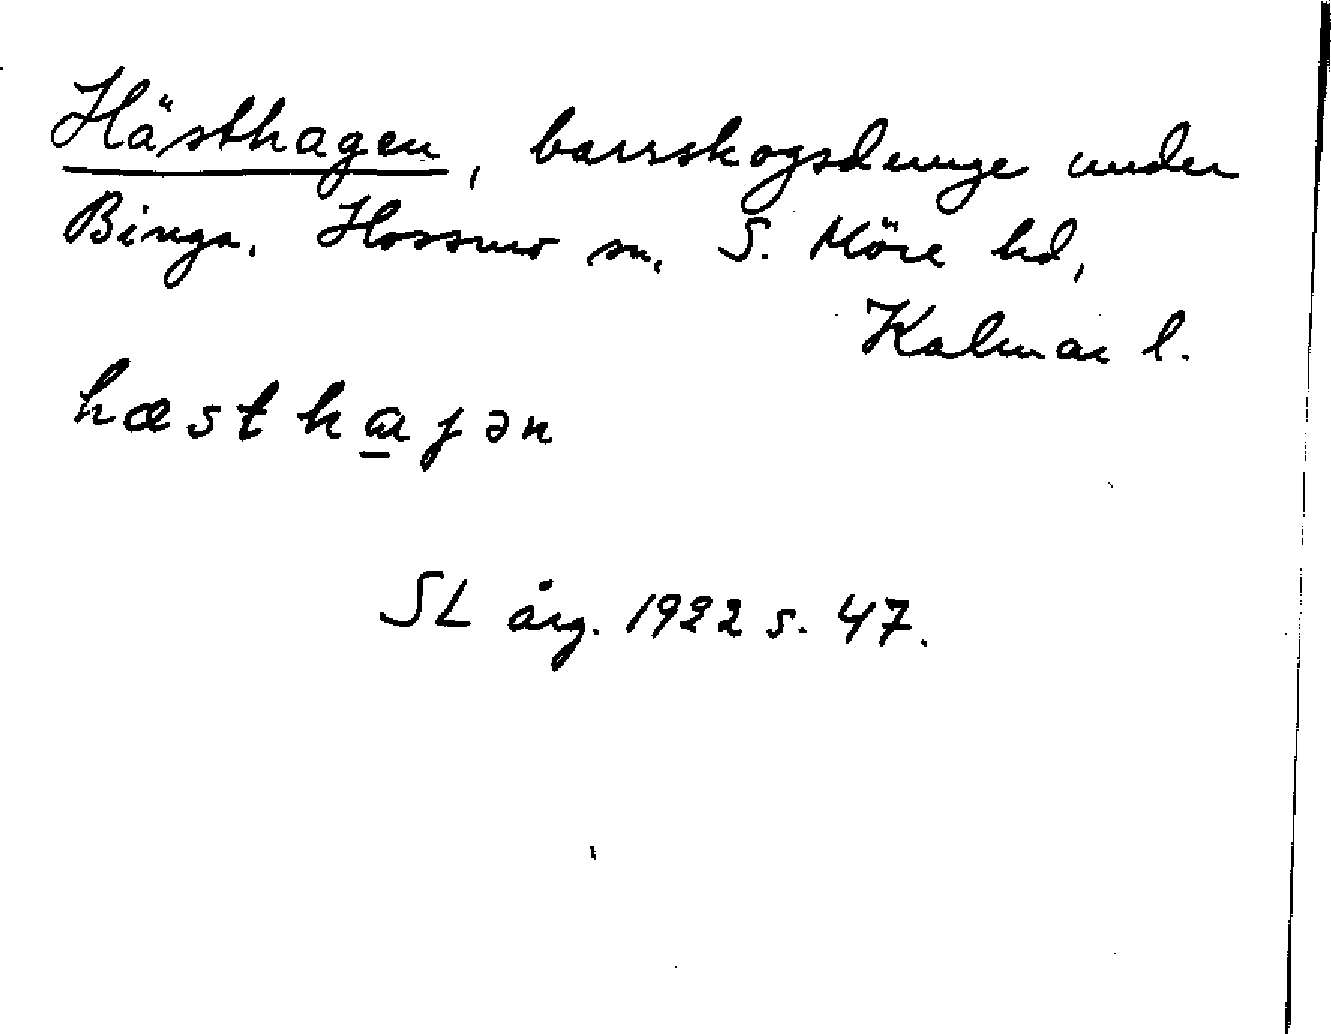 Hästhagen, barrskogsdunge under
Binga. Hossmo sn, S. Möre hd,
Kalmar l.
hæsthaɡ̲jən
SL årg. 1922 s. 47.